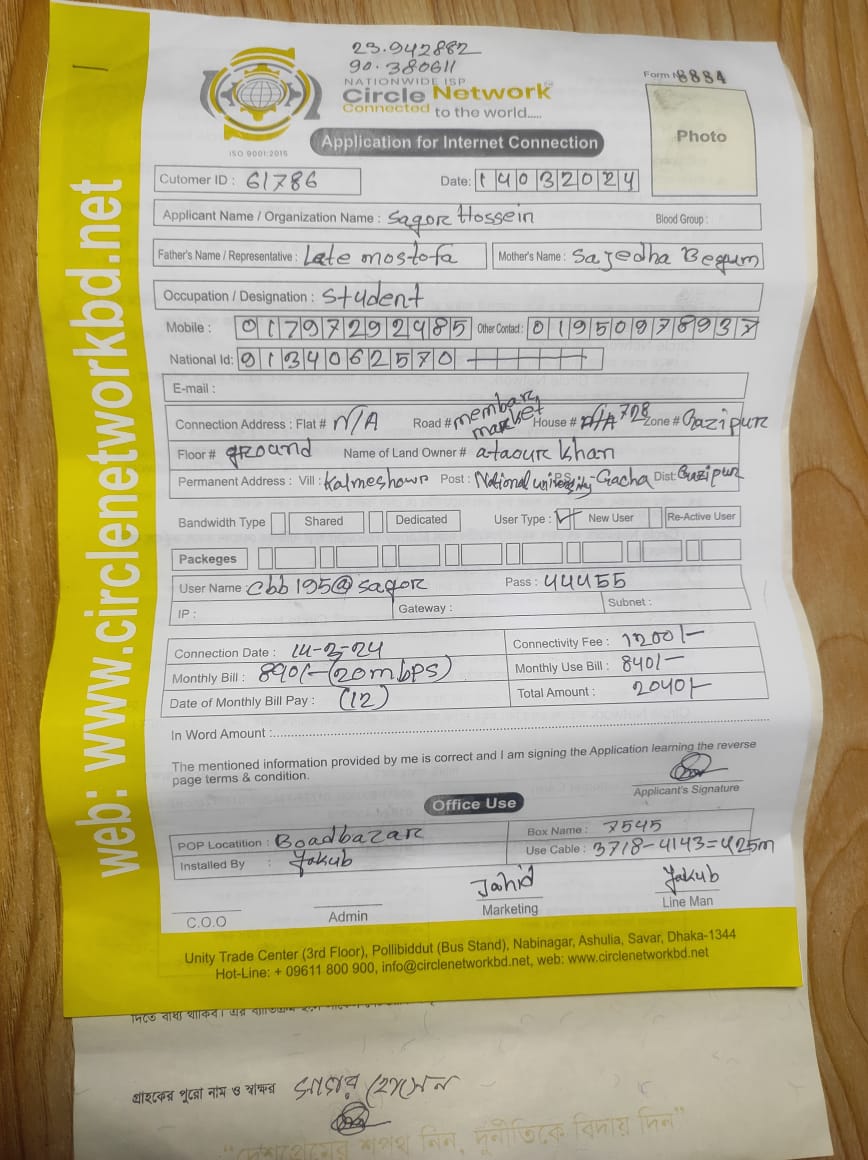 23.942882
90.380611
NATIONWIDE ISP
Circle Network
Connected to the world.....
ISO 9001:2015
Form N 8884
Photo
Application for Internet Connection
web: www.circlenetworkbd.net
Cutomer ID : 61786 Date: 14032024
Applicant Name / Organization Name : Sagor Hossein Blood Group :
Father's Name / Representative : Late mostofa Mother's Name : Sajedha Begum
Occupation / Designation : Student
Mobile : 01797292485 Other Contact : 01950978937
National Id: 9134062570
E-mail :
Connection Address : Flat # N/A Road # membar market House # N/A 728 Zone # Gazipur
Floor # ground Name of Land Owner # ataour khan
Permanent Address : Vill : Kalmeshowr Post : National university P.S Gacha Dist: Gazipur
Bandwidth Type Shared Dedicated User Type : ✓ New User Re-Active User
Packeges
User Name : cbb195@sagor Pass : 44455
IP : Gateway : Subnet :
Connection Date : 14-3-24 Connectivity Fee : 1200/-
Monthly Bill : 890/- (20mbps) Monthly Use Bill : 840/-
Date of Monthly Bill Pay : (12) Total Amount : 2040/-
In Word Amount :
The mentioned information provided by me is correct and I am signing the Application learning the reverse
page terms & condition.
Applicant's Signature
Office Use
POP Locatition : Boadbazar Box Name : 7545
Installed By : Yakub Use Cable : 3718-4143=425m
Jahid Yakub
C.O.O Admin Marketing Line Man
Unity Trade Center (3rd Floor), Pollibiddut (Bus Stand), Nabinagar, Ashulia, Savar, Dhaka-1344
Hot-Line: + 09611 800 900, info@circlenetworkbd.net, web: www.circlenetworkbd.net
দিতে বাধ্য থাকিব।
গ্রাহকের পুরো নাম ও স্বাক্ষর সাগর হোসেন
“দেশপ্রেমের শপথ নিন, দুর্নীতিকে বিদায় দিন”